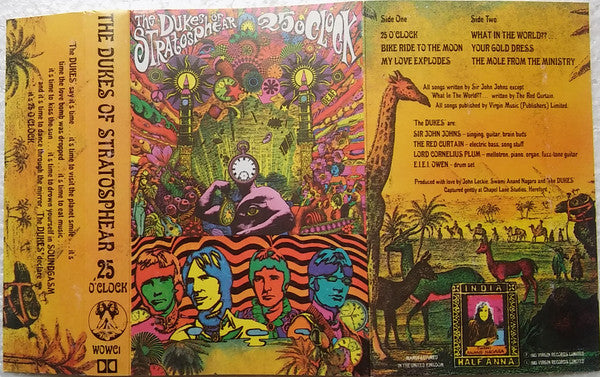 THE DUKES OF STRATOSPHEAR 25 O'CLOCK
The DUKES say it's time . . . it's time to visit the planet smile . . . it's
time the love bomb was dropped . . . it's time to eat music . . .
it's time to kiss the sun . . . it's time to drown yourself in SOUNDGASM
and it's time to dance through the mirror. The DUKES declare
it's 25 O'CLOCK.
WOWC1
The DUKES of
STRATOSPHEAR
25 O'CLOCK
Side One
25 O'CLOCK
BIKE RIDE TO THE MOON
MY LOVE EXPLODES
Side Two
WHAT IN THE WORLD??...
YOUR GOLD DRESS
THE MOLE FROM THE MINISTRY
All songs written by Sir John Johns except
What In The World??... written by The Red Curtain.
All songs published by Virgin Music (Publishers) Limited.
The DUKES are:
SIR JOHN JOHNS - singing, guitar, brain buds
THE RED CURTAIN - electric bass, song stuff
LORD CORNELIUS PLUM - mellotron, piano, organ, fuzz-tone guitar
E.I.E.I. OWEN - drum set
Produced with love by John Leckie, Swami Anand Nagara and the DUKES
Captured gently at Chapel Lane Studios, Hereford
INDIA
ANAND NAGARA
HALF ANNA
MANUFACTURED
IN THE UNITED KINGDOM
℗ 1985 VIRGIN RECORDS LIMITED
© 1985 VIRGIN RECORDS LIMITED